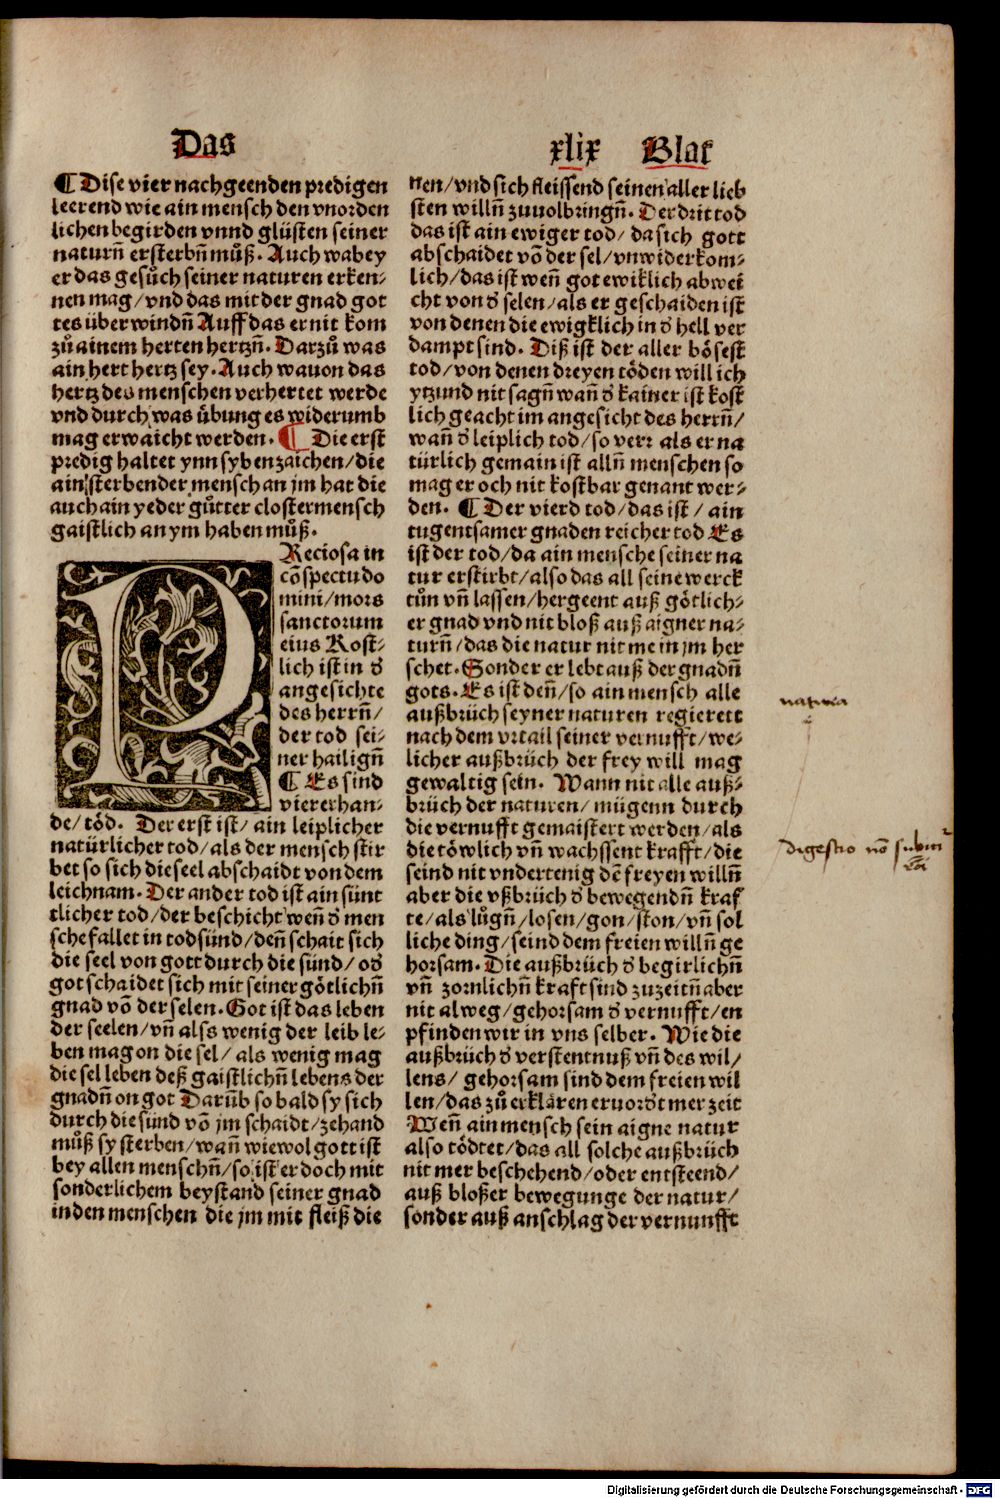 Das xlix Blat
¶ Dise vier nachgeenden predigen
leerend wie ain mensch den vnorden
lichen begirden vnnd glüsten seiner
naturn̄ ersterbn̄ můß. Auch wabey
er das gesůch seiner naturen erken⸗
nen mag/ vnd das mit der gnad got
tes überwindn̄ Auff das er nit kom
zů ainem herten hertzn̄. Darzů was
ain hert hertz sey. Auch wauon das
hertz des menschen verhertet werde
vnd durch was übung es widerumb
mag erwaicht werden. ¶ Die erst
predig haltet ynn syben zaichen/ die
ain sterbender mensch an jm hat die
auch ain yeder gůtter clostermensch
gaistlich an ym haben můß.
PReciosa in
cōspectu do
mini/ mors
sanctorum
eius Kost⸗
lich ist in d̕
angesichte
des herrn̄/
der tod sei⸗
ner hailign̄
¶ Es sind
viererhan⸗
de/ töd. Der erst ist/ ain leiplicher
natürlicher tod/ als der mensch stir
bet so sich die seel abschaidt von dem
leichnam. Der ander tod ist ain sünt
tlicher tod/ der beschicht wen̄ d̕ men
sche fallet in todsünd/ den̄ schait sich
die seel von gott durch die sünd/ od̕
got schaidet sich mit seiner götlichn̄
gnad vō der selen. Got ist das leben
der seelen/ vn̄ alss wenig der leib le⸗
ben mag on die sel/ als wenig mag
die sel leben deß gaistlichn̄ lebens der
gnadn̄ on got Darūb so bald sy sich
durch die sünd vō jm schaidt/ zehand
můß sy sterben/ wan̄ wiewol gott ist
bey allen menschn̄/ so ist er doch mit
sonderlichem beystand seiner gnad
in den menschen die jm mit fleiß die
nen/ vnd sich fleissend seinen aller lieb
sten willn̄ zuuolbringn̄. Der drit tod
das ist ain ewiger tod/ da sich gott
abschaidet vō der sel/ vnwiderkom⸗
lich/ das ist wen̄ got ewiklich abwei
cht von d̕ selen/ als er geschaiden ist
von denen die ewigklich in d̕ hell ver
dampt sind. Diß ist der aller bösest
tod/ von denen dreyen töden will ich
ytzund nit sagn̄ wan̄ d̕ kainer ist kost
lich geacht im angesicht des herrn̄/
wan̄ d̕ leiplich tod/ so verr als er na
türlich gemain ist alln̄ menschen so
mag er och nit kostbar genant wer⸗
den. ¶ Der vierd tod/ das ist/ ain
tugentsamer gnaden reicher tod Es
ist der tod/ da ain mensche seiner na
tur erstirbt/ also das all seine werck
tůn vn̄ lassen/ hergeent auß götlich⸗
er gnad vnd nit bloß auß aigner na⸗
turn̄/ das die natur nit me in jm her
schet. Sonder er lebt auß der gnadn̄
gots. Es ist den̄/ so ain mensch alle
außbrüch seyner naturen regierett
nach dem vrtail seiner vernufft/ we⸗
licher außbrüch der frey will mag
gewaltig sein. Wann nit alle auß⸗
brüch der naturen/ mügenn durch
die vernufft gemaistert werden/ als
die töwlich vn̄ wachssent krafft/ die
seind nit vndertenig dē freyen willn̄
aber die vßbrüch d̕ bewegendn̄ kraf
te/ als lůgn̄/ losen/ gon/ ston/ vn̄ sol
liche ding/ seind dem freien willn̄ ge
horsam. Die außbrüch d̕ begirlichn̄
vn̄ zornlichn̄ kraft sind zuzeitn̄ aber
nit alweg/ gehorsam d̕ vernufft/ en
pfinden wir in vns selber. Wie die
außbrüch d̕ verstentnuß vn̄ des wil/
lens/ gehorsam sind dem freien wil
len/ das zů erklären eruord̕t mer zeit
Wen̄ ain mensch sein aigne natur
also tödtet/ das all solche außbrüch
nit mer beschehend/ oder entsteend/
auß bloßer bewegunge der natur/
sonder auß anschlag der vernunfft
natura
digestio nō
Digitalisierung gefördert durch die Deutsche Forschungsgemeinschaft - DFG